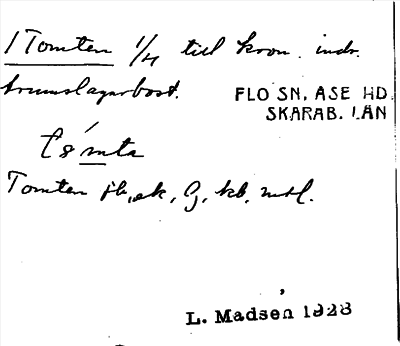 1 Tomten 1/4 till kron. indr.
trumslagarbost.
FLO SN, ÅSE HD
SKARAB. LÄN
Tomten jb, ek, G, kb, mtl.
L. Madsén 1928